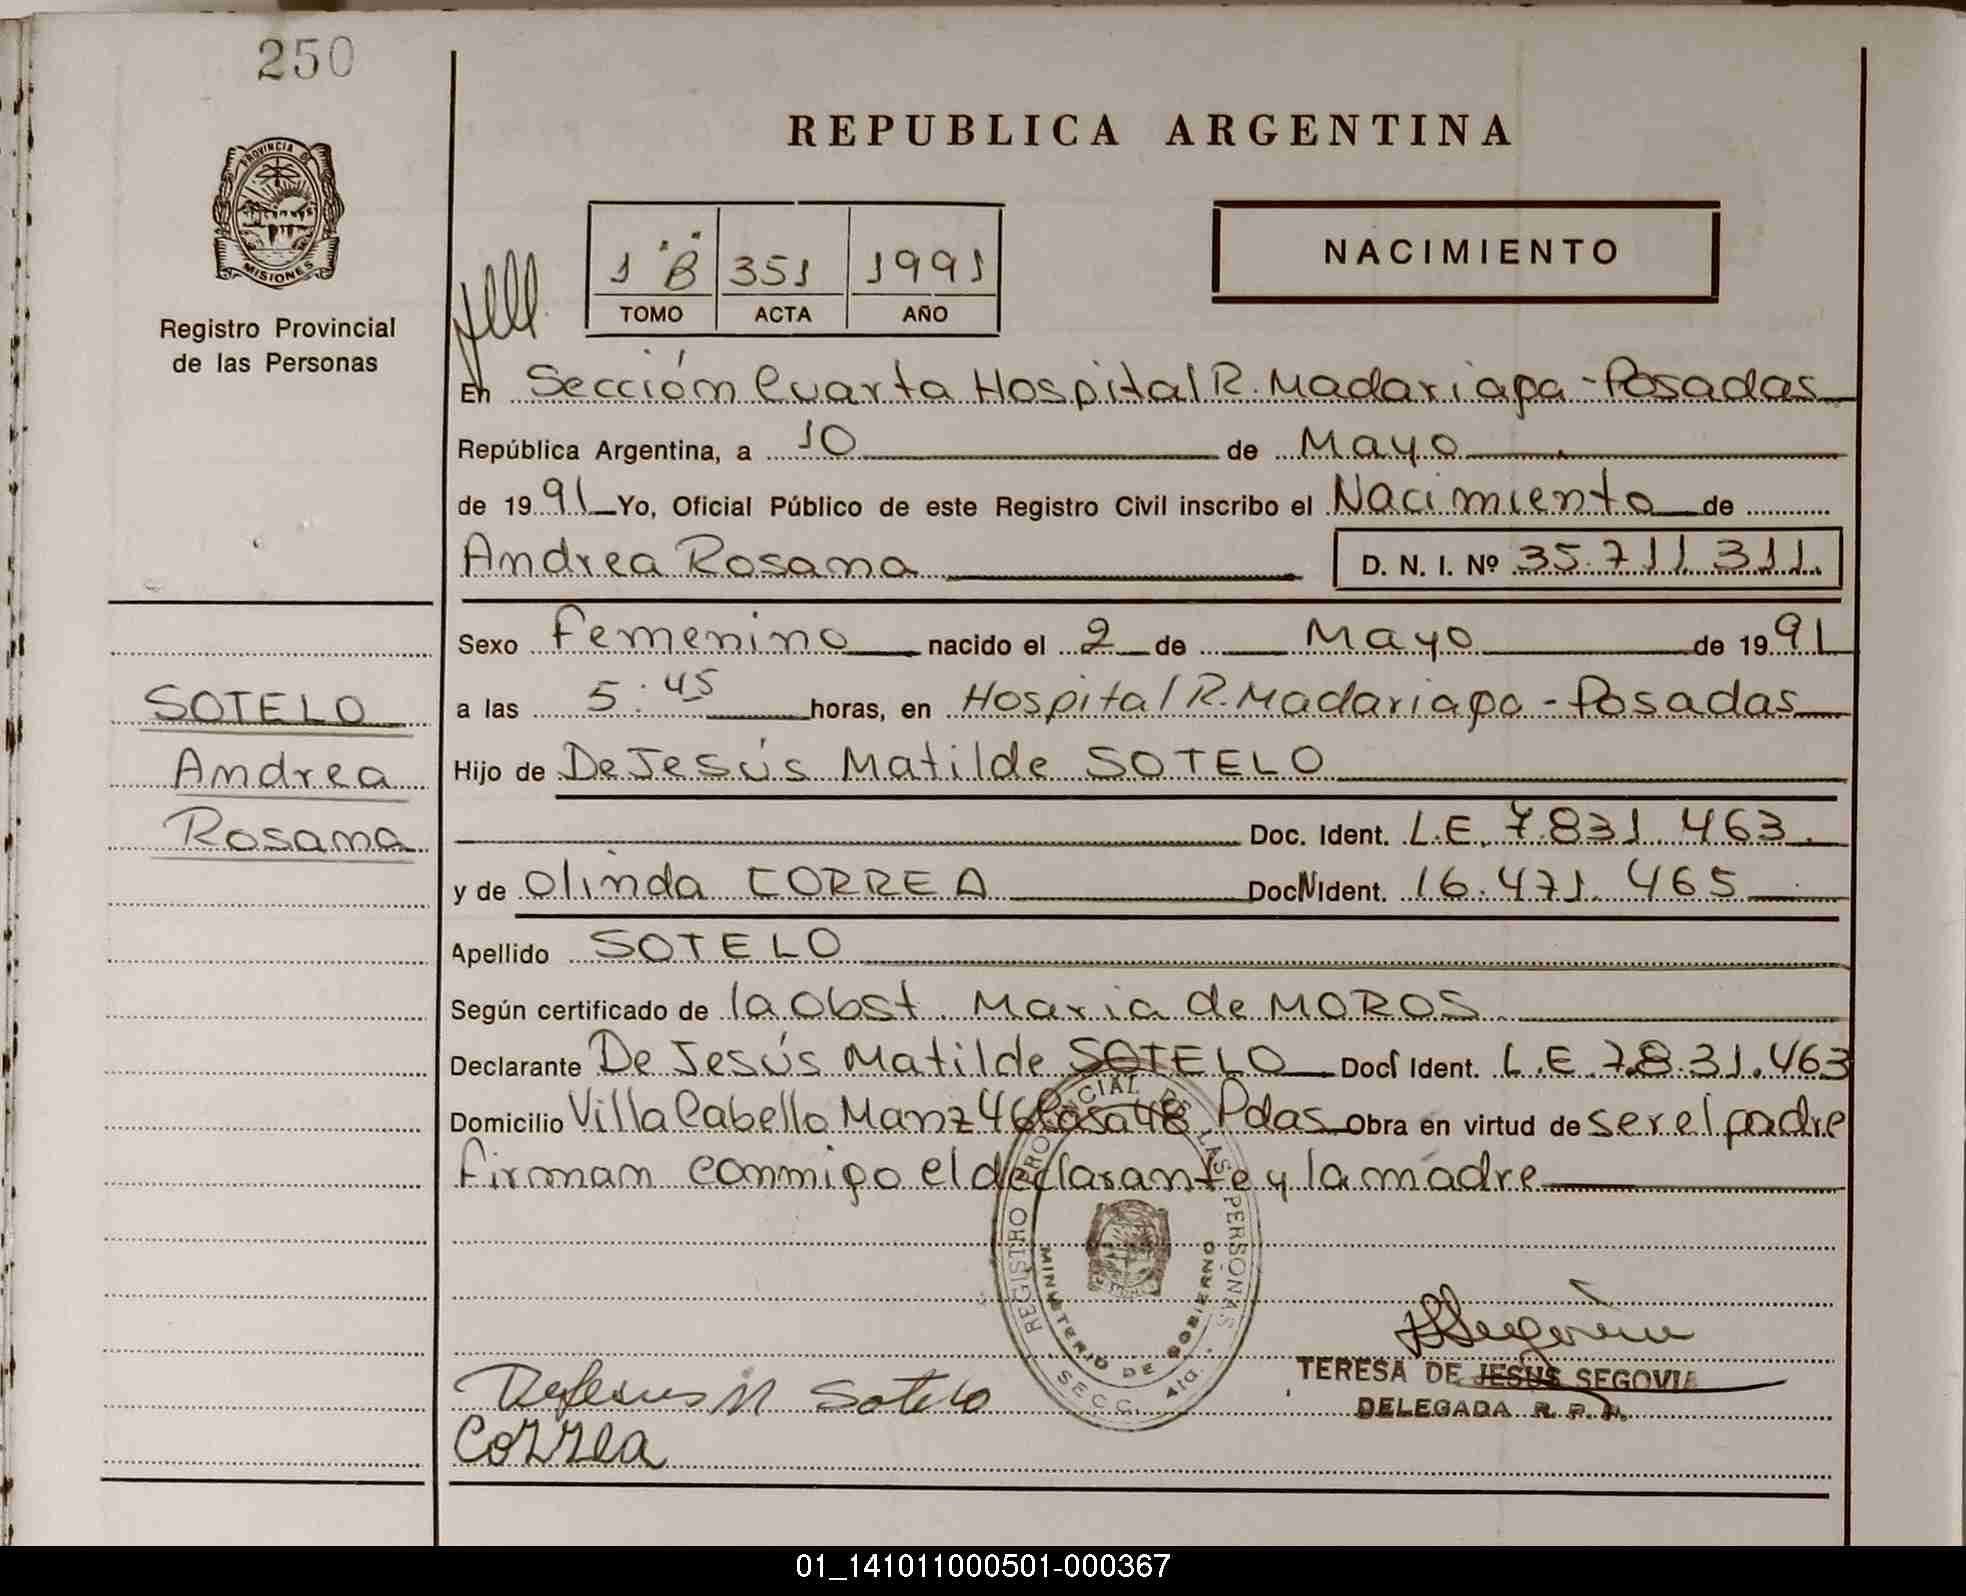 250
PROVINCIA DE
MISIONES
Registro Provincial
de las Personas
SOTELO
Andrea
Rosana
REPUBLICA ARGENTINA
1 "B" 351 1991
TOMO ACTA AÑO
NACIMIENTO
En Sección Cuarta Hospital R. Madariaga - Posadas
República Argentina, a 10 de Mayo
de 1991 Yo, Oficial Público de este Registro Civil inscribo el Nacimiento de
Andrea Rosana D. N. I. Nº 35.711.311.
Sexo Femenino nacido el 2 de Mayo de 1991
a las 5:45 horas, en Hospital R. Madariaga - Posadas
Hijo de De Jesús Matilde SOTELO
Doc. Ident. L.E. 7.831.463.
y de Olinda CORREA Doc. Ident. 16.471.465
Apellido SOTELO
Según certificado de la Obst. Maria de MOROS.
Declarante De Jesús Matilde SOTELO Doc. Ident. L.E. 7.831.463
Domicilio Villa Cabello Manz 46 Casa 48 Pdas Obra en virtud de ser el padre
Firman conmigo el declarante y la madre
REGISTRO PROVINCIAL DE LAS PERSONAS
MINISTERIO DE GOBIERNO
SECC. 4ta.
TERESA DE JESUS SEGOVIA
DELEGADA R. P. P.
DeJesus M Sotelo
Correa
01_141011000501-000367